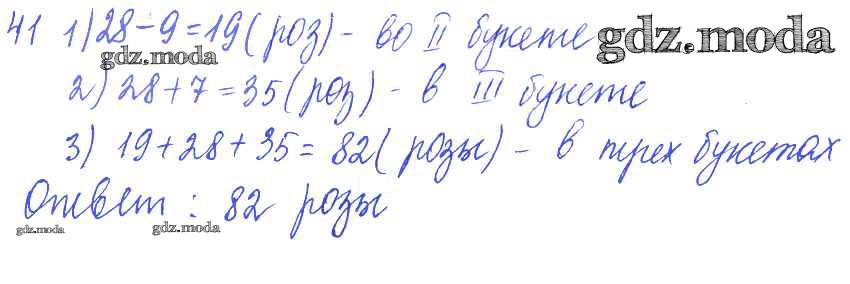 41 1) 28 - 9 = 19 (роз) - во II букете gdz.moda
gdz.moda
2) 28 + 7 = 35 (роз) - в III букете
3) 19 + 28 + 35 = 82 (розы) - в трех букетах
Ответ : 82 розы
gdz.moda gdz.moda